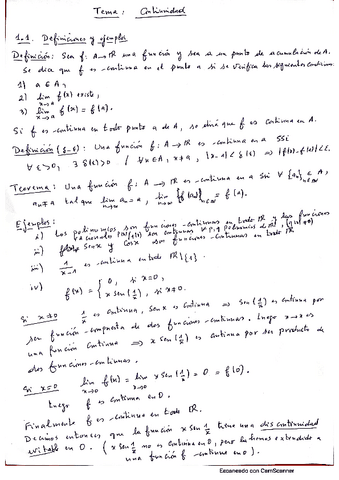 Tema: Continuidad
1.1. Definiciones y ejemplos
Definición: Sea f: A→ℝ una función y sea a un punto de acumulación de A.
Se dice que f es continua en el punto a si se verifica las siguientes condiciones:
1) a ∈ A,
2) lim x→a f(x) existe,
3) lim x→a f(x) = f(a).
Si f es continua en todo punto a de A, se dirá que f es continua en A.
Definición (δ-ε): Una función f: A→ℝ es continua en a ssi
∀ε>0, ∃ δ(ε)>0 / ∀x∈A, x≠a, |x-a|<δ(ε) ⇒ |f(x)-f(a)|<ε.
Teorema: Una función f: A→ℝ es continua en a ssi ∀ {aₙ}ₙ∈ℕ
aₙ≠a tal que lim aₙ = a, lim {f(aₙ)}ₙ∈ℕ = f(a).
Ejemplos:
i) Los polinomios son funciones continuas en todo ℝ y las funciones
racionales son continuas
ii) sen x y cos x son funciones continuas en todo ℝ
iii) 1/(x-1) es continua en todo ℝ\{1}
iv) f(x) = { 0, si x=0,
x sen(1/x), si x≠0.
Si x≠0 1/x es continua, sen x es continua ⇒ sen(1/x) es continua por
ser función compuesta de dos funciones continuas. Luego x→x es
una función continua ⇒ x sen(1/x) es continua por ser producto de
dos funciones continuas.
Si x=0 lim x→0 f(x) = lim x→0 x sen(1/x) = 0 = f(0).
Luego f es continua en 0.
Finalmente f es continua en todo ℝ.
Decimos entonces que la función x sen 1/x tiene una discontinuidad
evitable en 0. (x sen 1/x no es continua en 0, pero la hemos extendido a
una función f continua en 0).
Escaneado con CamScanner